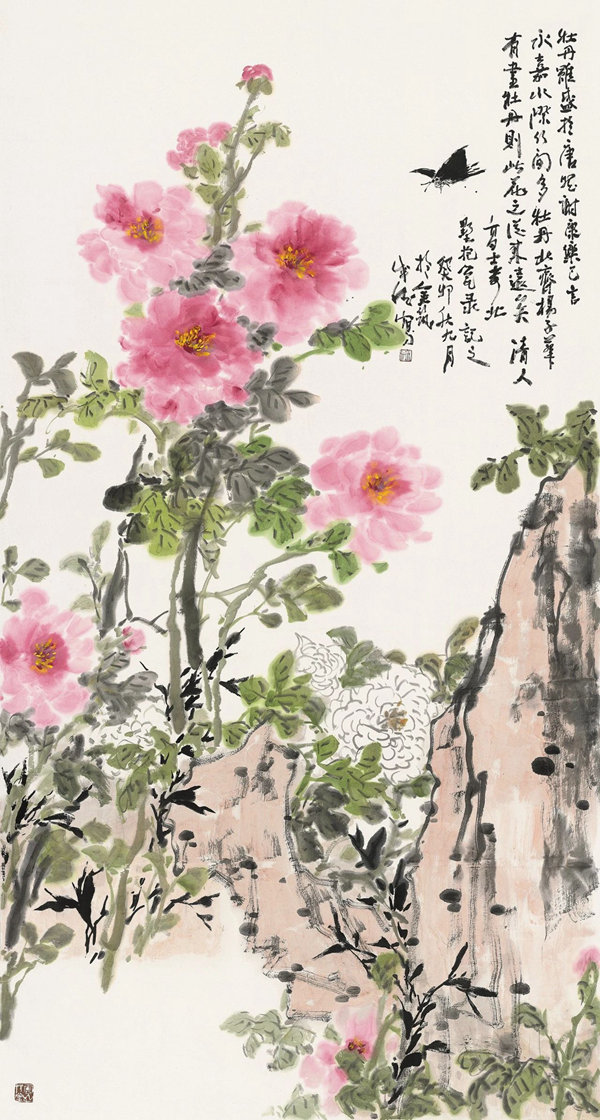 牡丹雖盛於唐然謝康樂已言
永嘉水際竹間多牡丹北齊楊子華
有畫牡丹則此花之從來遠矣 清人
高士奇北
墅抱甕录記之
癸卯秋九月
於金城